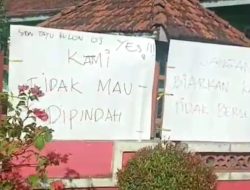 SDN TAYU KULON 03 YES !!!
KAMI
TIDAK MAU
DIPINDAH
JANGAN
BIARKAN
TIDAK